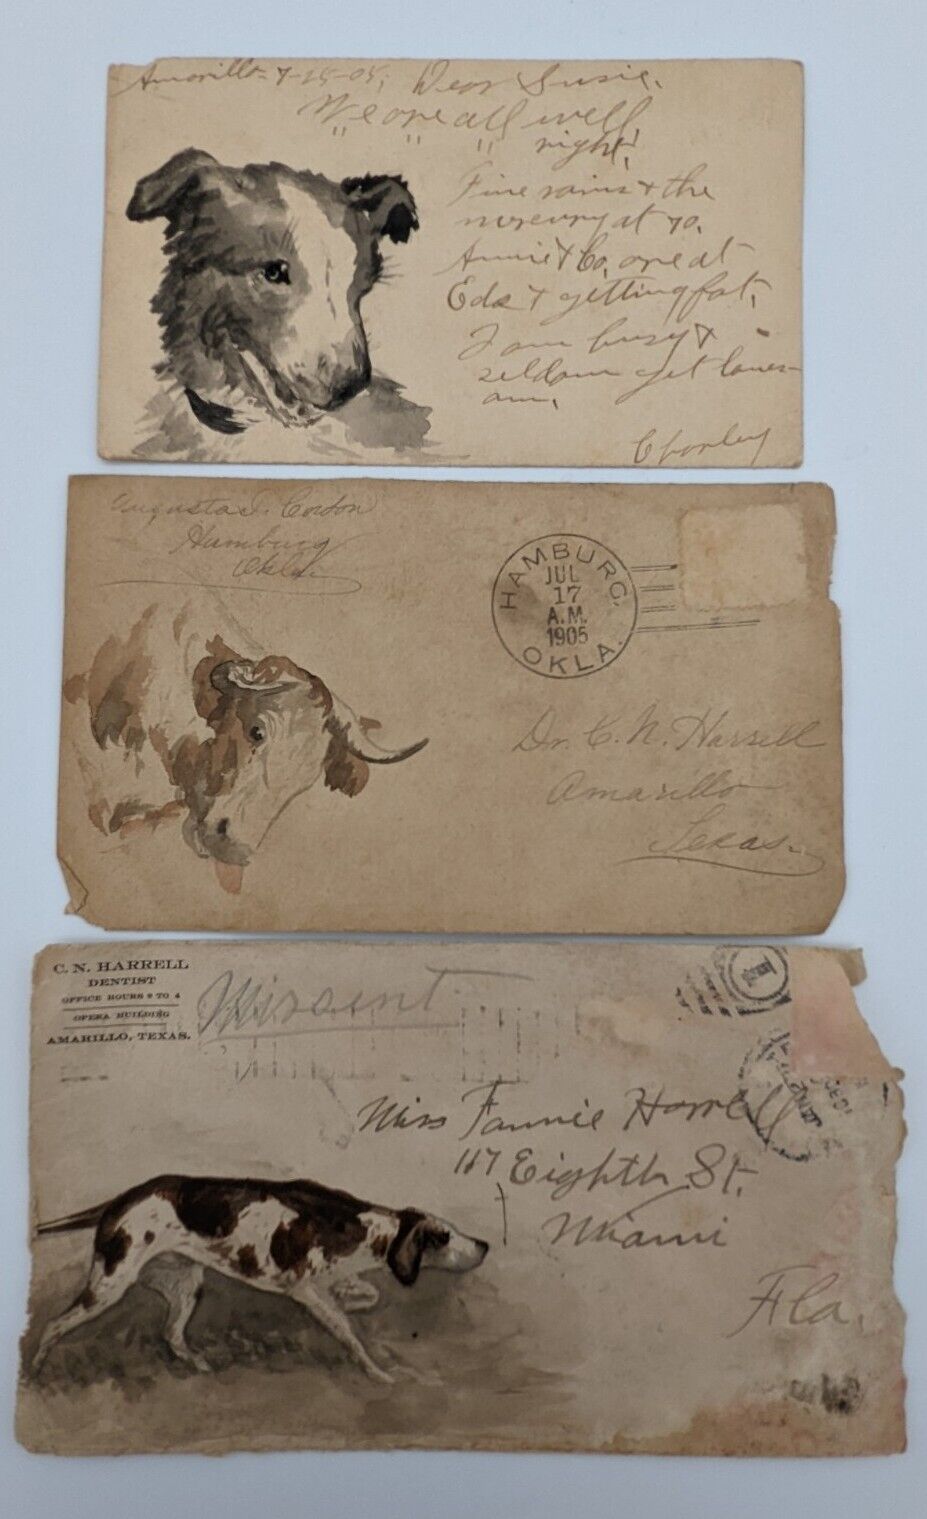 Amarillo - 7-25-05, Dear Susie.
We are all well,
" " " right!
Fine rains & the
mercury at 70.
Annie & Co. are at
Eds & getting fat,
I am busy &
seldom get lones-
om.
Charley
Augusta Cordon
Hamburg
Okla.
HAMBURG,
JUL
17
A.M.
1905
OKLA.
Dr. C. N. Harrell
Amarillo
Texas.
C. N. HARRELL
DENTIST
OFFICE HOURS 9 TO 4
OPERA BUILDING
AMARILLO, TEXAS.
Missent
Miss Fannie Harrell
117 Eighth St.
Miami
Fla.